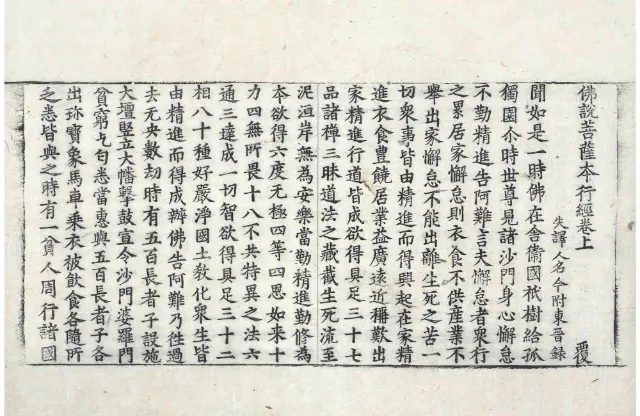 佛説菩薩本行經卷上
失譯人名今附東晉録
覆
聞如是一時佛在舍衞國祇樹給孤
獨園尒時世尊見諸沙門身心懈怠
不勤精進告阿難言夫懈怠者衆行
之累居家懈怠則衣食不供産業不
舉出家懈怠不能出離生死之苦一
切衆事皆由精進而得興起在家精
進衣食豊饒居業益廣遠近稱歎出
家精進行道皆成欲得具足三十七
品諸禪三昧道法之藏截生死流至
泥洹岸無為安樂當勤精進勤修為
本欲得六度无極四等四恩如来十
力四無所畏十八不共特異之法六
通三達成一切智欲得具足三十二
相八十種好嚴淨國土教化衆生皆
由精進而得成辦佛告阿難乃往過
去无央數劫時有五百長者子設施
大壇竪立大幡擊鼓宣令沙門婆羅門
貧窮乞匃悉當惠與五百長者子各
出珎寶象馬車乗衣被飲食各隨所
之悉皆與之時有一貧人周行諸國